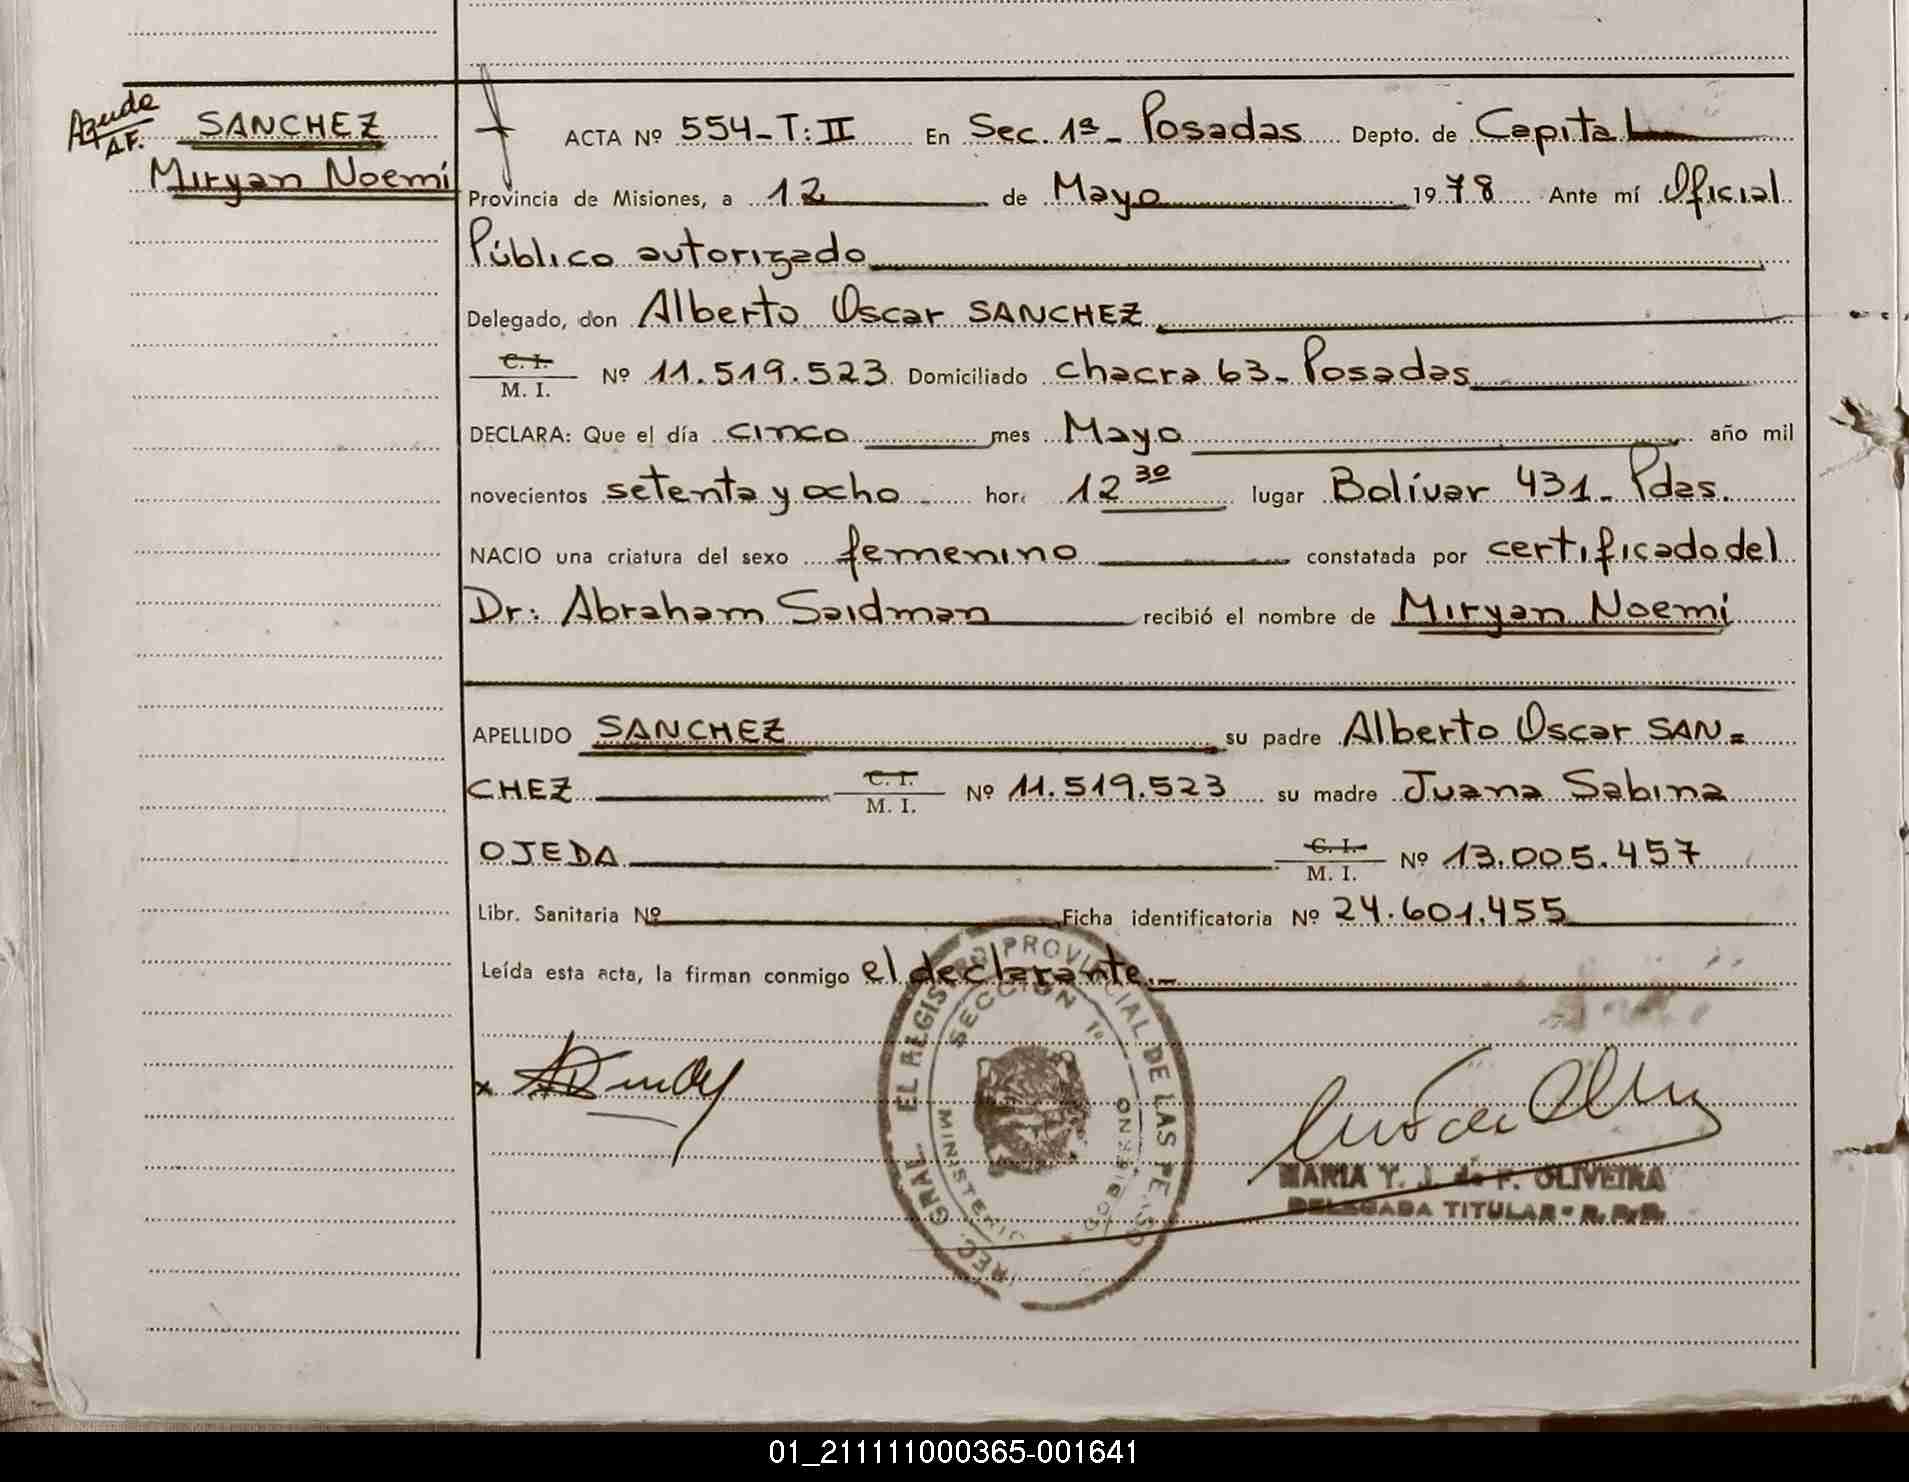 Ayuda
A.F.
SANCHEZ
Miryan Noemí
ACTA Nº 554-T: II En Sec. 1ª - Posadas Depto. de Capital
Provincia de Misiones, a 12 de Mayo 1978 Ante mí Oficial
Público autorizado
Delegado, don Alberto Oscar SANCHEZ
C. I.
M. I. Nº 11.519.523 Domiciliado chacra 63 - Posadas
DECLARA: Que el día cinco mes Mayo año mil
novecientos setenta y ocho hora 12 30 lugar Bolívar 431 - Pdas.
NACIO una criatura del sexo femenino constatada por certificado del
Dr: Abraham Saidman recibió el nombre de Miryan Noemí
APELLIDO SANCHEZ su padre Alberto Oscar SAN=
CHEZ C. I. M. I. Nº 11.519.523 su madre Juana Sabina
OJEDA C. I. M. I. Nº 13.005.457
Libr. Sanitaria Nº Ficha identificatoria Nº 24.601.455
Leída esta acta, la firman conmigo el declarante.-
REC. GRAL. EL REGISTRO PROVINCIAL DE LAS
SECCION 1ª
MINISTERIO GOBIERNO
MARIA Y. J. de F. OLIVEIRA
DELEGADA TITULAR - R. P. P.
01_211111000365-001641